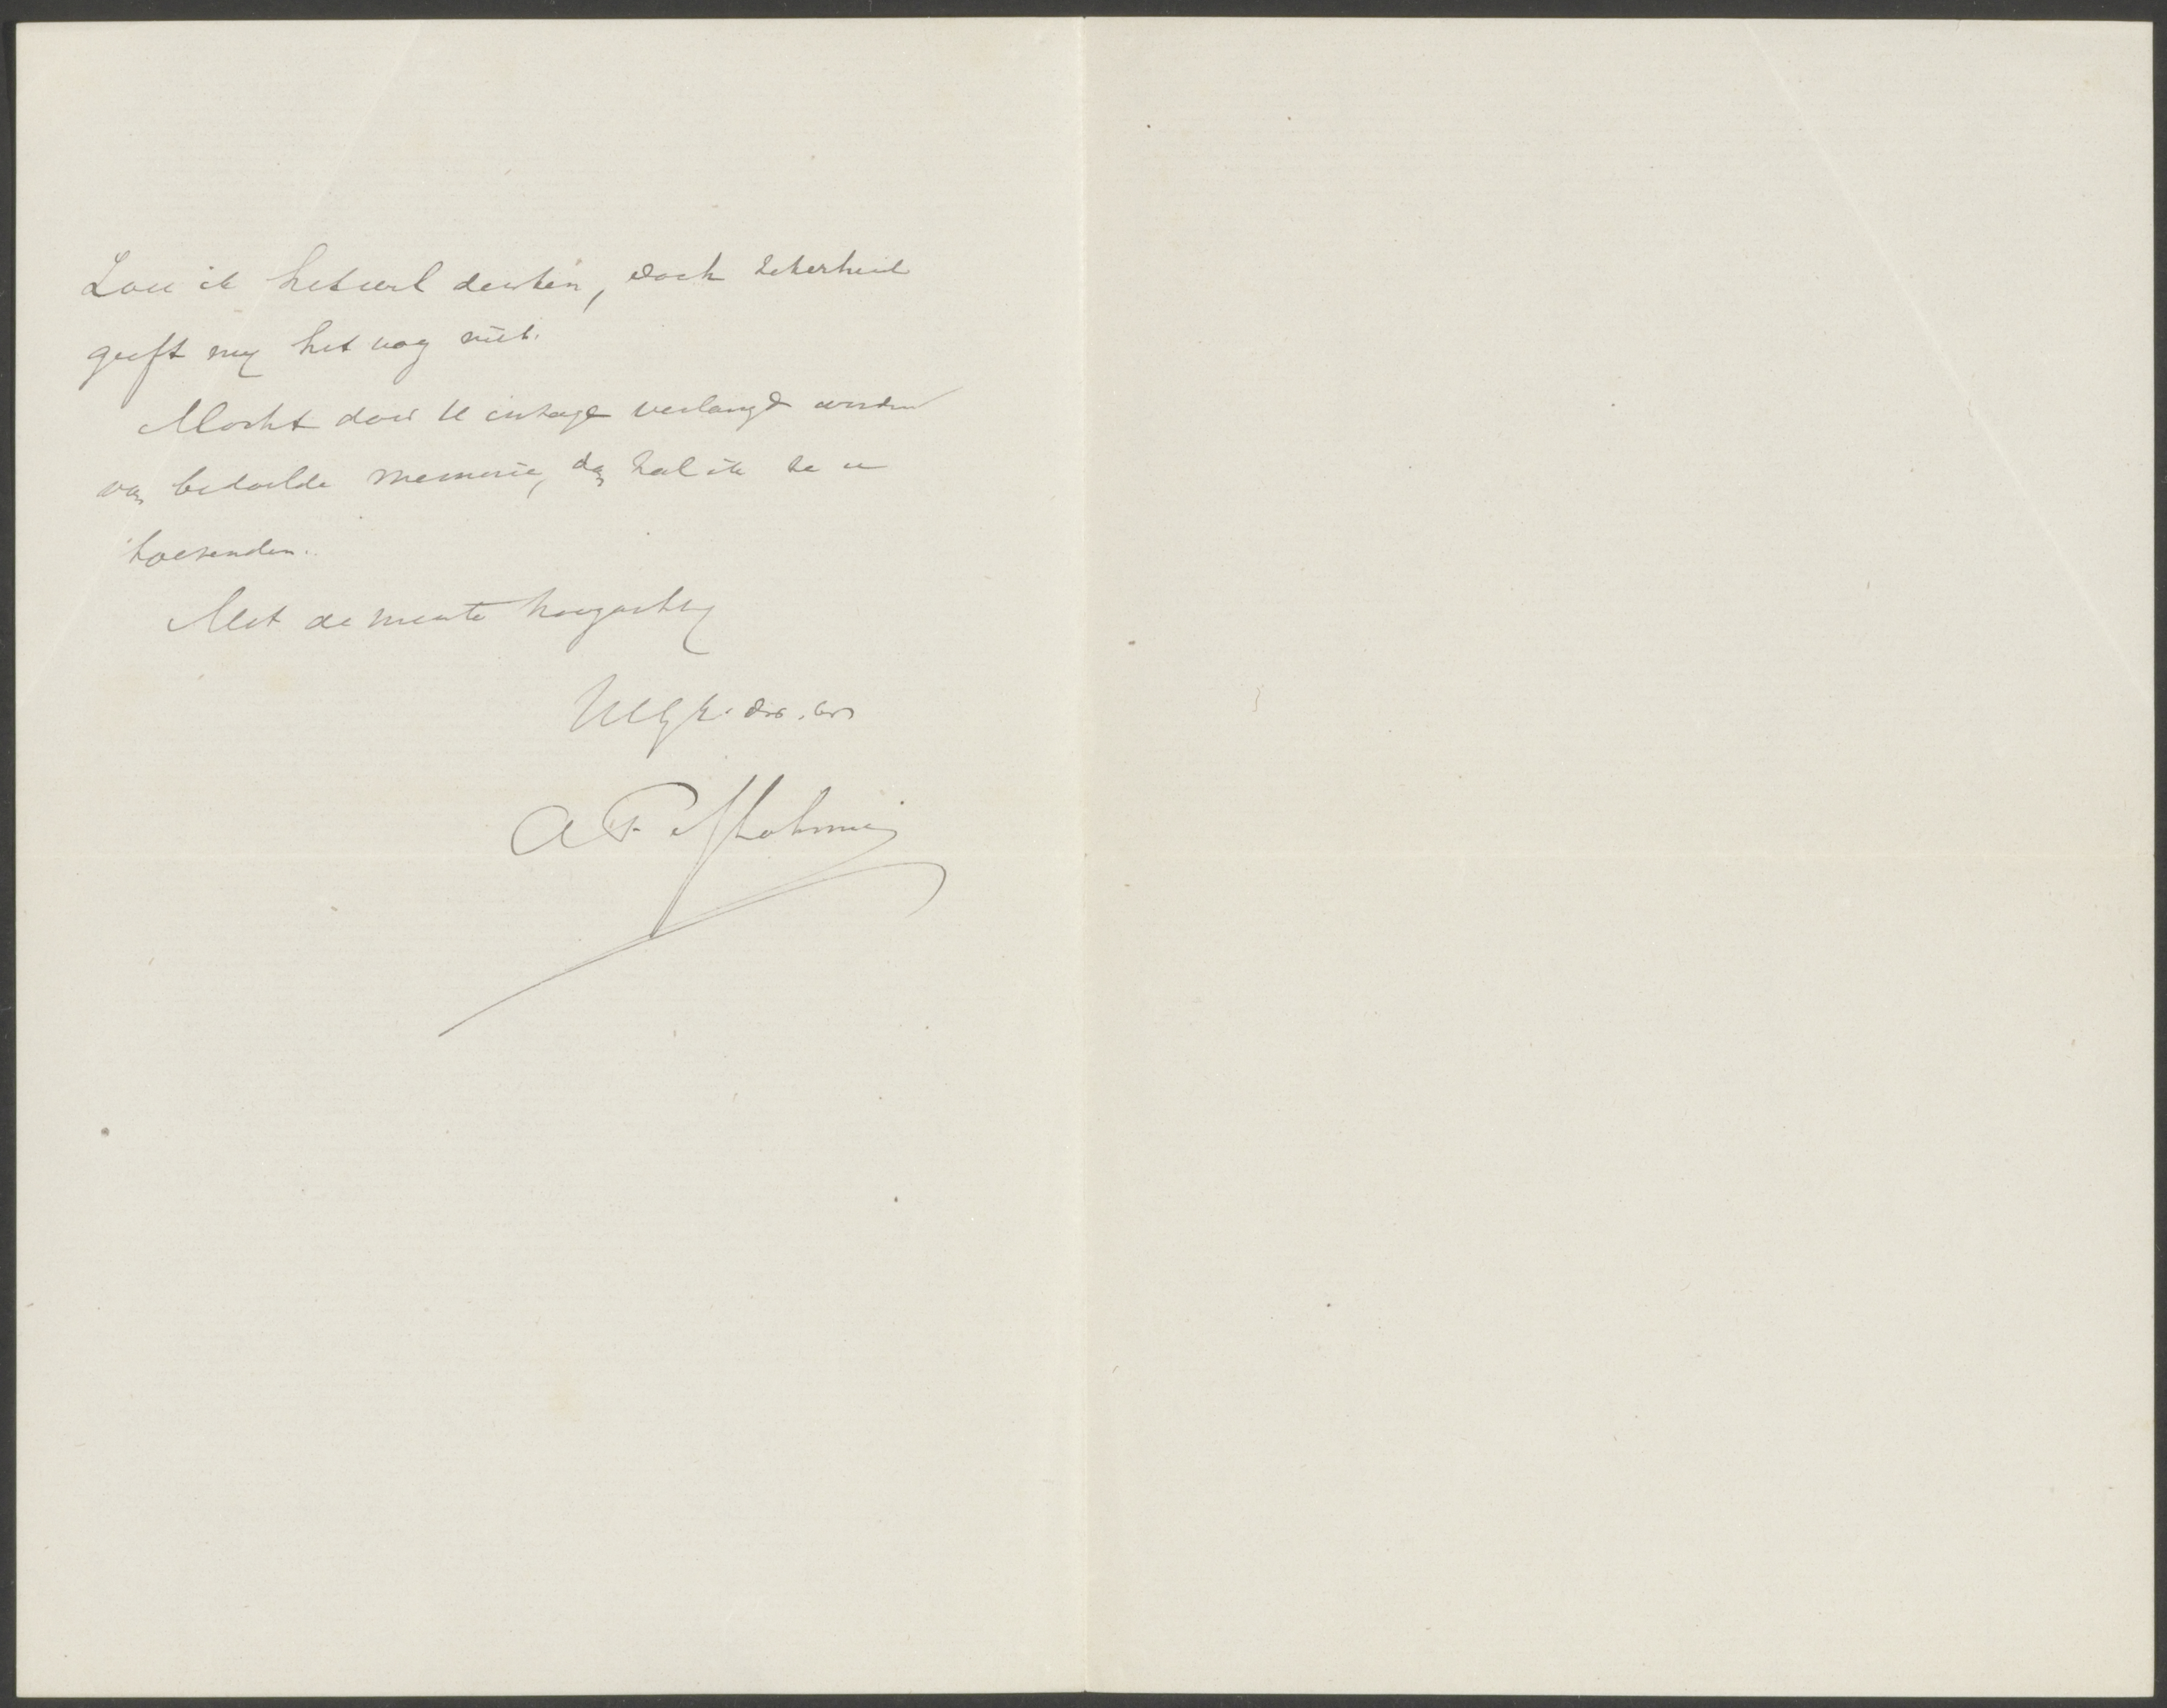 Zou ik het wel denken, doch zekerheid
geeft mij het nog niet.
Mocht door U inzage verlangd worden
van bedoelde memorie, dan zal ik ze u
toezenden.
Met de meeste hoogachting
UEG
A F